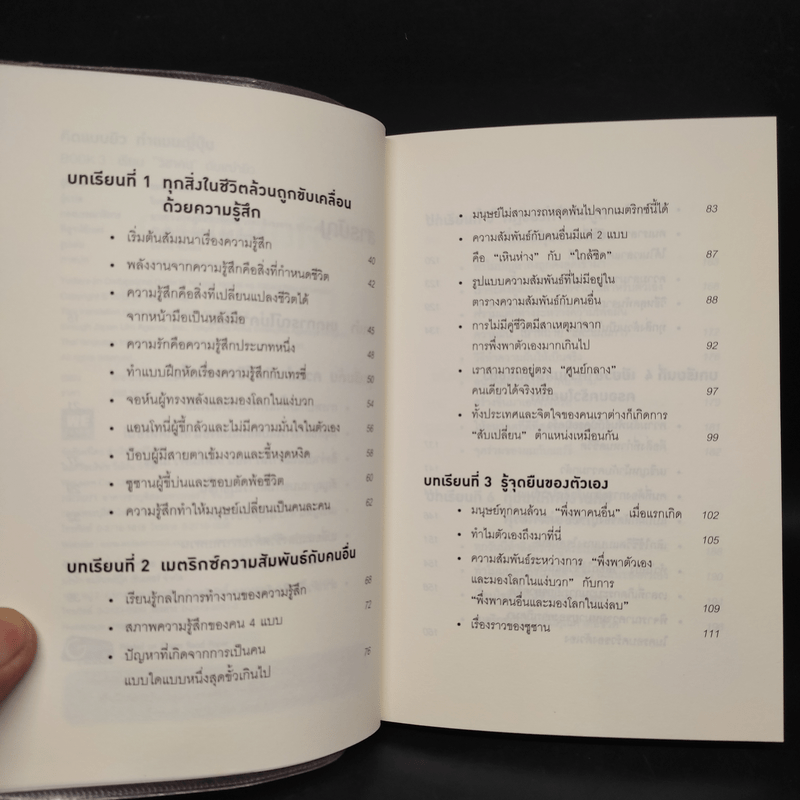 บทเรียนที่ 1 ทุกสิ่งในชีวิตล้วนถูกขับเคลื่อน
ด้วยความรู้สึก
• เริ่มต้นสัมมนาเรื่องความรู้สึก 40
• พลังงานจากความรู้สึกคือสิ่งที่กำหนดชีวิต 42
• ความรู้สึกคือสิ่งที่เปลี่ยนแปลงชีวิตได้
จากหน้ามือเป็นหลังมือ 45
• ความรักคือความรู้สึกประเภทหนึ่ง 48
• ทำแบบฝึกหัดเรื่องความรู้สึกกับเทรซี่ 50
• จอห์นผู้ทรงพลังและมองโลกในแง่บวก 54
• แอนโทนี่ผู้ขี้กลัวและไม่มีความมั่นใจในตัวเอง 56
• บ๊อบผู้มีสายตาเข้มงวดและขี้หงุดหงิด 58
• ซูซานผู้ขี้บ่นและชอบตัดพ้อชีวิต 60
• ความรู้สึกทำให้มนุษย์เปลี่ยนเป็นคนละคน 62
บทเรียนที่ 2 เมตริกซ์ความสัมพันธ์กับคนอื่น
• เรียนรู้กลไกการทำงานของความรู้สึก 68
• สภาพความรู้สึกของคน 4 แบบ 72
• ปัญหาที่เกิดจากการเป็นคน 76
แบบใดแบบหนึ่งสุดขั้วเกินไป
• มนุษย์ไม่สามารถหลุดพ้นไปจากเมตริกซ์นี้ได้ 83
• ความสัมพันธ์กับคนอื่นมีแค่ 2 แบบ
คือ "เหินห่าง" กับ "ใกล้ชิด" 87
• รูปแบบความสัมพันธ์ที่ไม่มีอยู่ใน
ตารางความสัมพันธ์กับคนอื่น 88
• การไม่มีคู่ชีวิตมีสาเหตุมาจาก
การพึ่งพาตัวเองมากเกินไป 92
• เราสามารถอยู่ตรง "ศูนย์กลาง"
คนเดียวได้จริงหรือ 97
• ทั้งประเทศและจิตใจของคนเราต่างก็เกิดการ
"สับเปลี่ยน" ตำแหน่งเหมือนกัน 99
บทเรียนที่ 3 รู้จุดยืนของตัวเอง
• มนุษย์ทุกคนล้วน "พึ่งพาคนอื่น" เมื่อแรกเกิด 102
• ทำไมตัวเองถึงมาที่นี่ 105
• ความสัมพันธ์ระหว่างการ "พึ่งพาตัวเอง
และมองโลกในแง่บวก" กับการ
"พึ่งพาคนอื่นและมองโลกในแง่ลบ" 109
• เรื่องราวของซูซาน 111